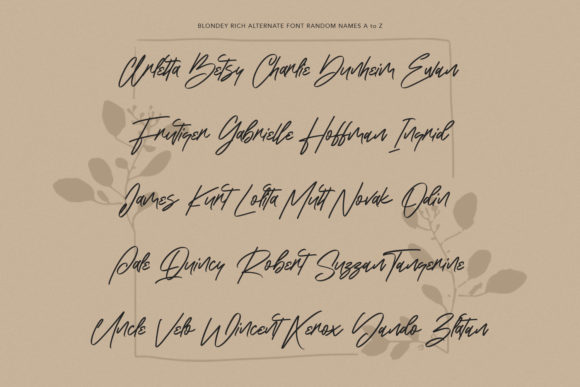 BLONDEY RICH ALTERNATE FONT RANDOM NAMES A to Z
Arletta Betsy Charlie Dunheim Ewan
Frutiger Gabrielle Hoffman Ingrid
James Kurt Lolita Mutt Novak Odin
Pale Quincy Robert Suzzan Tangerine
Uncle Velo Wincent Xerox Yando Zlatan